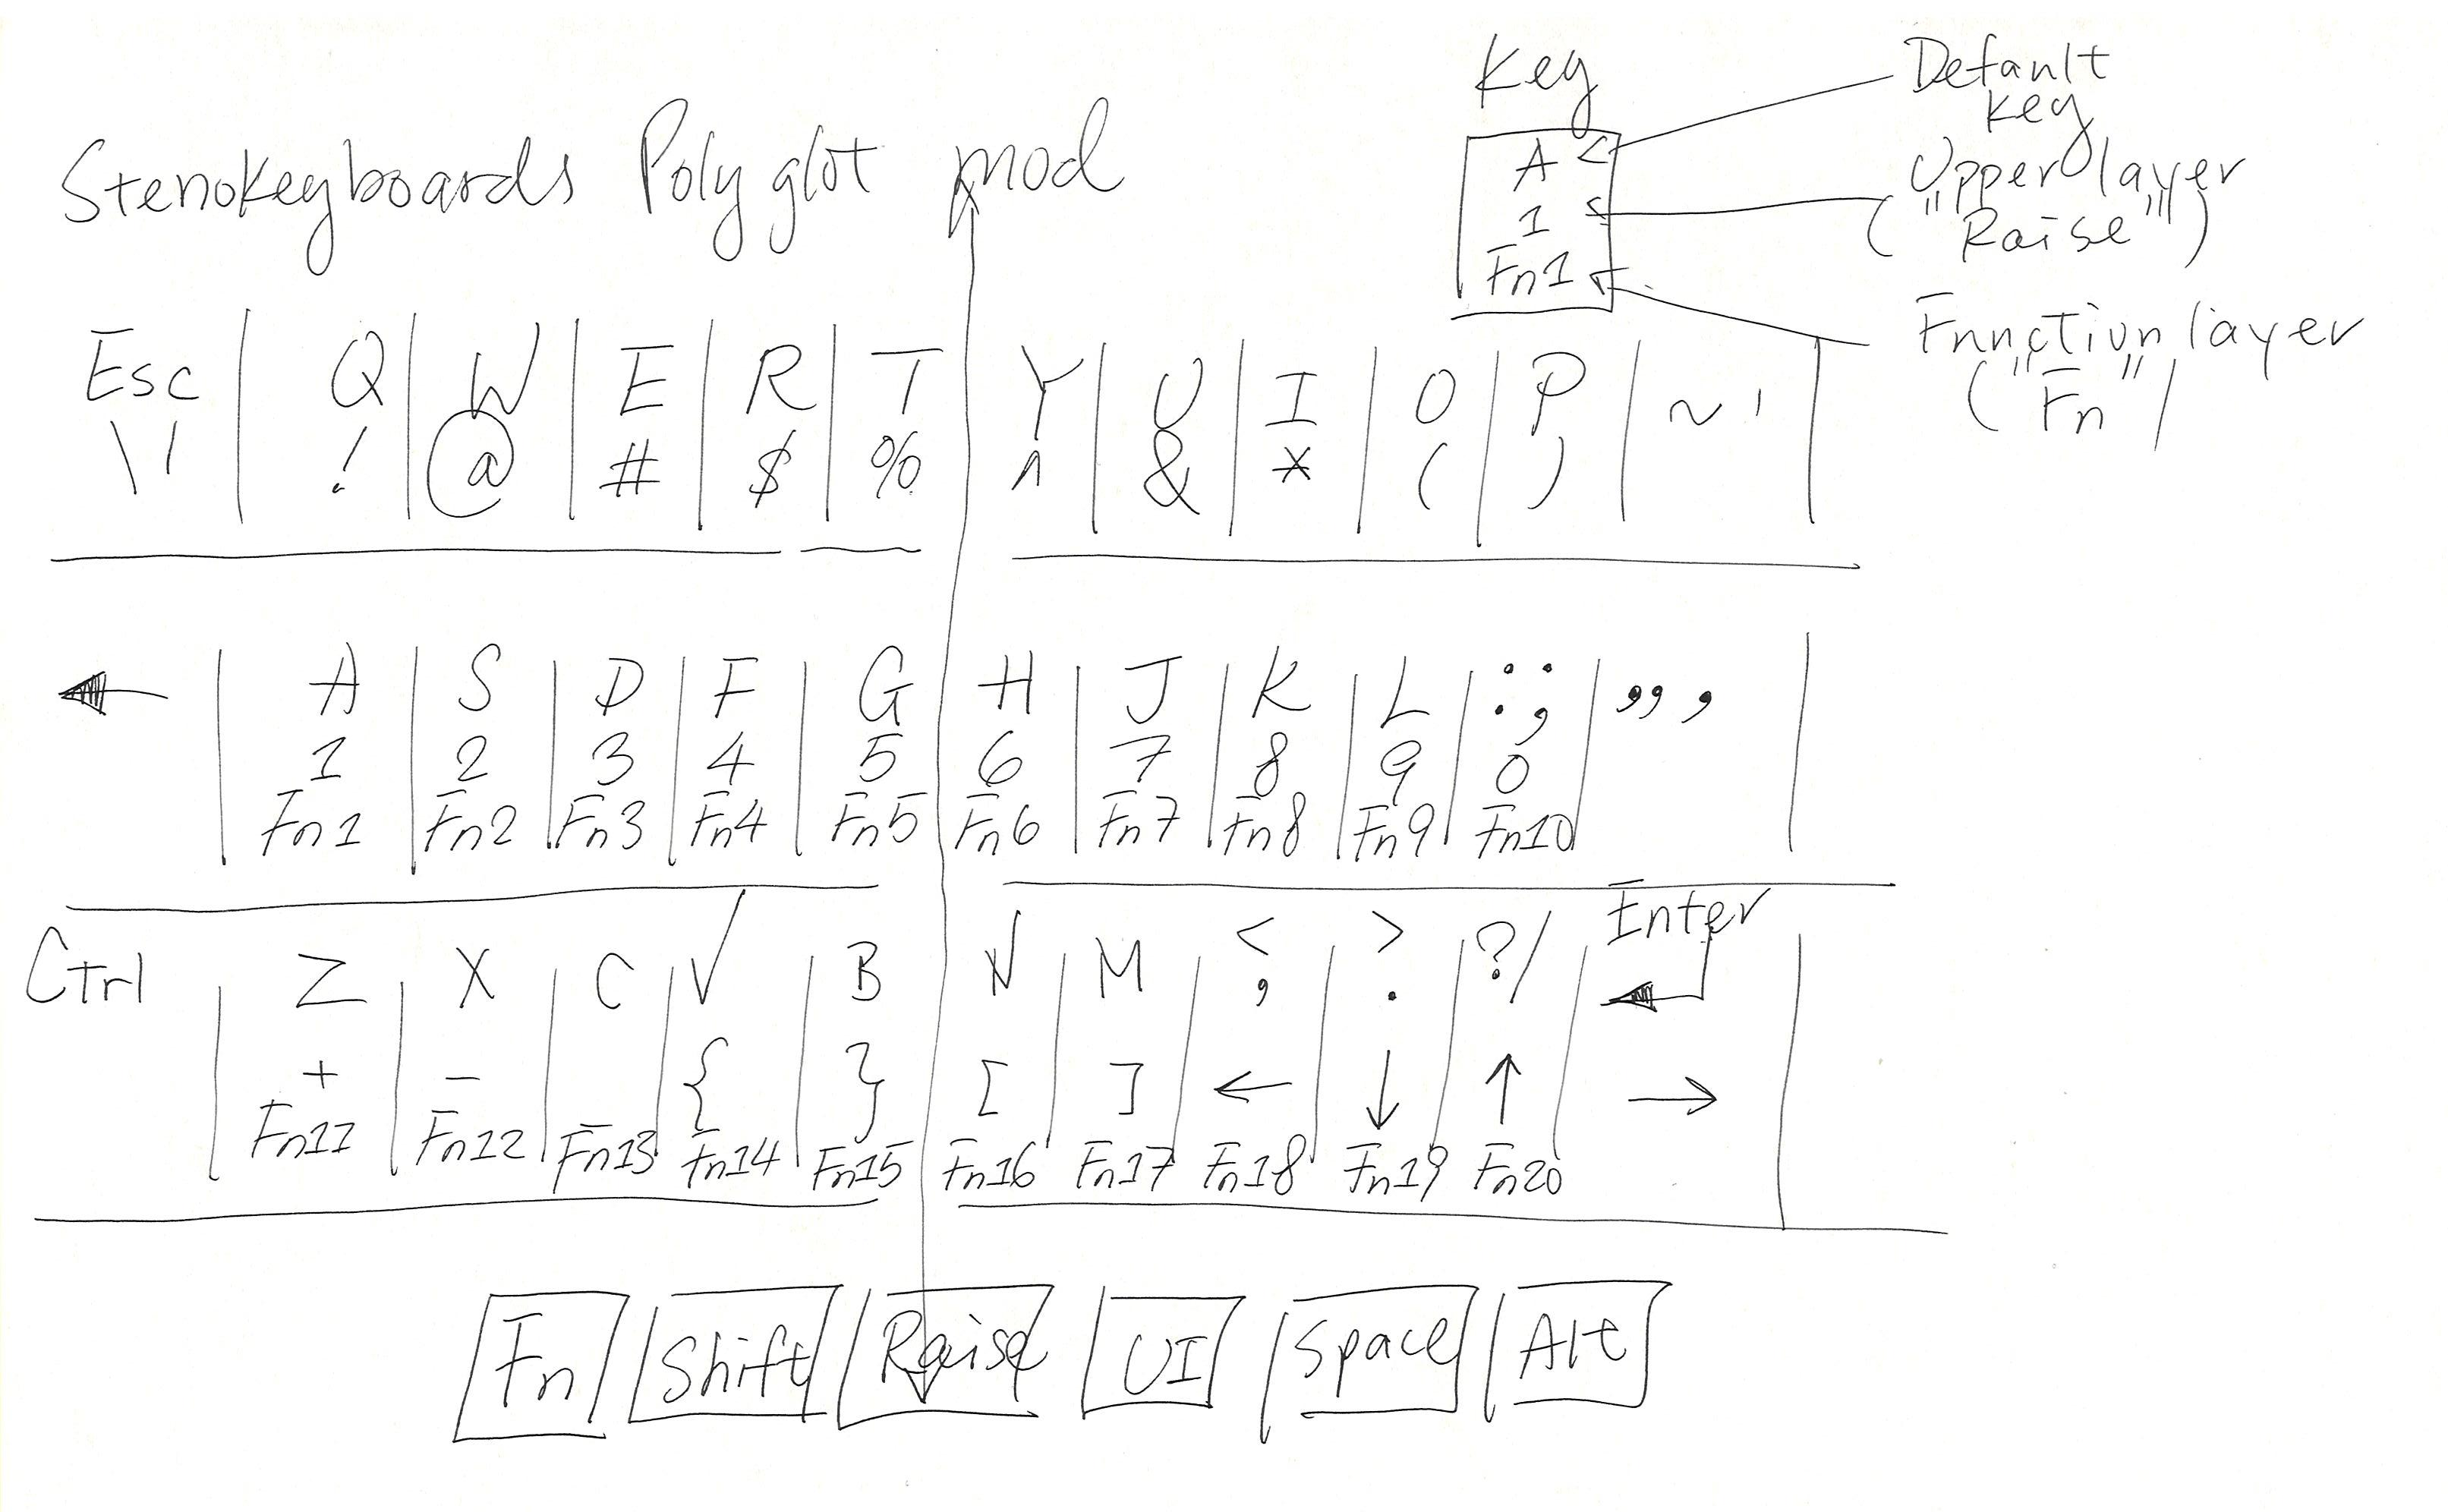 Stenokeyboards Polyglot mod
Key
A
1
Fn1
Default
key
Upper layer
("Raise")
Function layer
("Fn")
Esc Q W E R T Y U I O P ~ '
\ | ! @ # $ % ^ & * ( )
A S D F G H J K L : ; " '
1 2 3 4 5 6 7 8 9 0
Fn1 Fn2 Fn3 Fn4 Fn5 Fn6 Fn7 Fn8 Fn9 Fn10
Ctrl Z X C V B N M < , > . ? / Enter
+ - { } [ ] ← ↓ ↑ →
Fn11 Fn12 Fn13 Fn14 Fn15 Fn16 Fn17 Fn18 Fn19 Fn20
Fn Shift Raise UI Space Alt